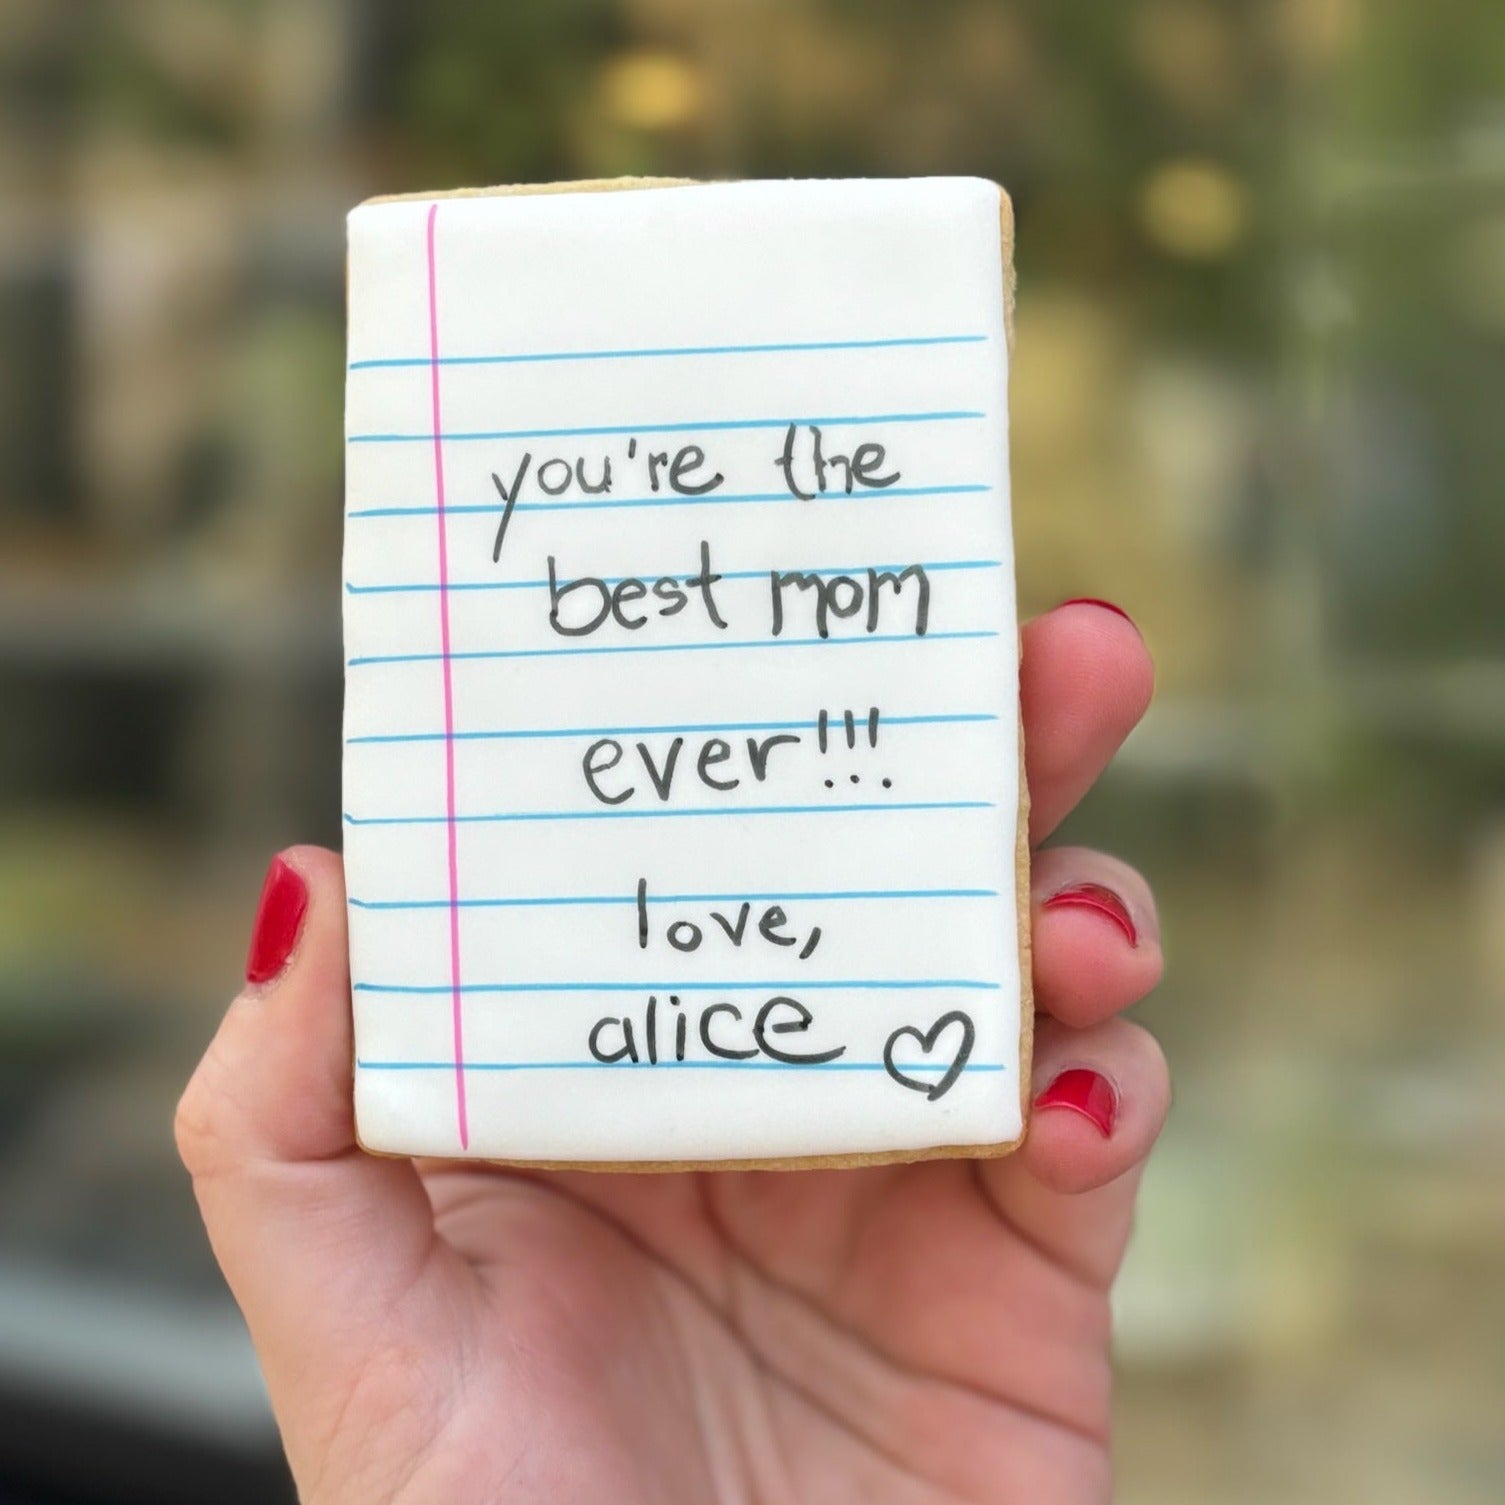 you're the
best mom
ever!!!
love,
alice